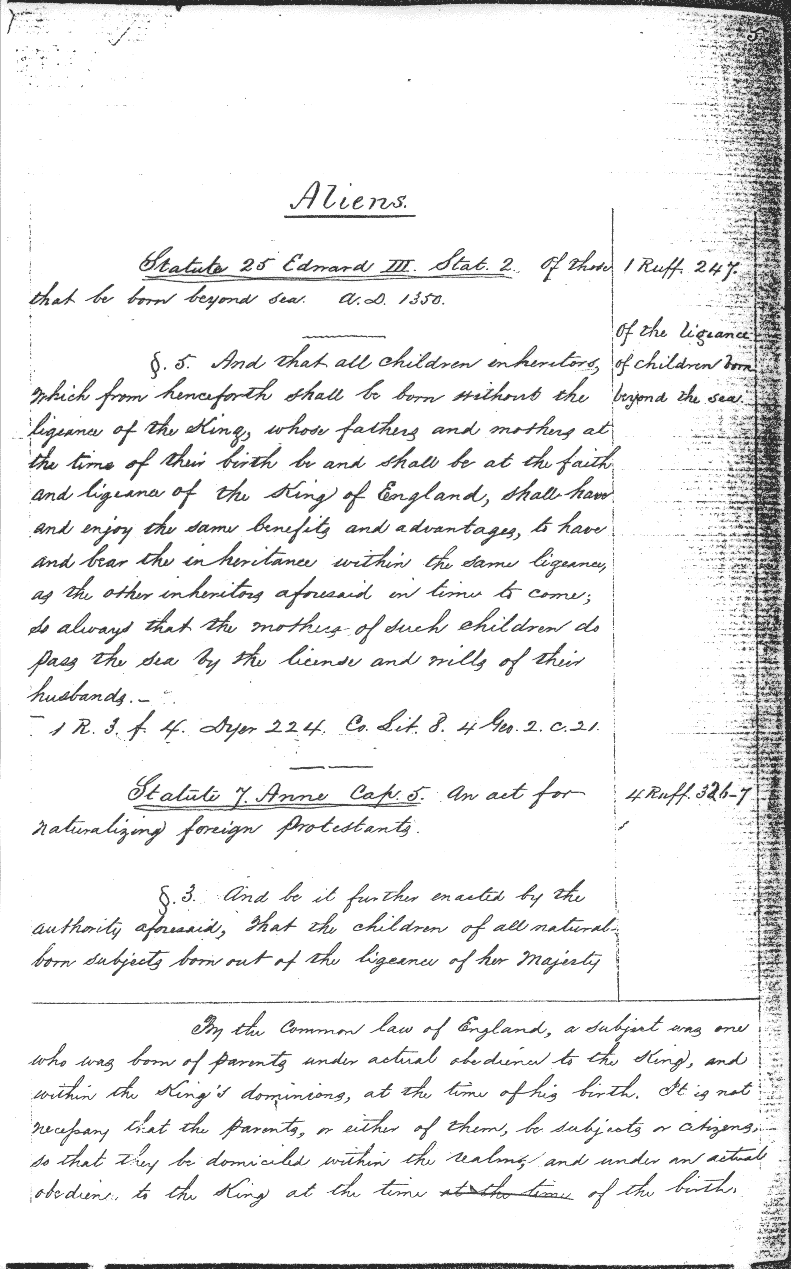 5
Aliens.
Statute 25 Edward III. Stat. 2. Of those
that be born beyond sea. A.D. 1350.
1 Ruff. 247.
§. 5. And that all children inheritors,
which from henceforth shall be born without the
ligeance of the King, whose fathers and mothers at
the time of their birth be and shall be at the faith
and ligeance of the King of England, shall have
and enjoy the same benefits and advantages, to have
and bear the inheritance within the same ligeance,
as the other inheritors aforesaid in time to come;
so always that the mothers of such children do
pass the sea by the license and wills of their
husbands. –
Of the ligeance
of children born
beyond the sea.
1 R. 3. f. 4. Dyer 224. Co. Lit. 8. 4 Geo. 2. c. 21.
Statute 7. Anne Cap. 5. An act for
naturalizing foreign Protestants.
4 Ruff. 326-7
§. 3. And be it further enacted by the
authority aforesaid, That the children of all natural-
born subjects born out of the ligeance of her Majesty
By the Common law of England, a subject was one
who was born of parents under actual obedience to the King, and
within the King's dominions, at the time of his birth. It is not
necessary that the parents, or either of them, be subjects or citizens,
so that they be domiciled within the realm, and under an actual
obedienc. to the King at the time at the time of the birth.